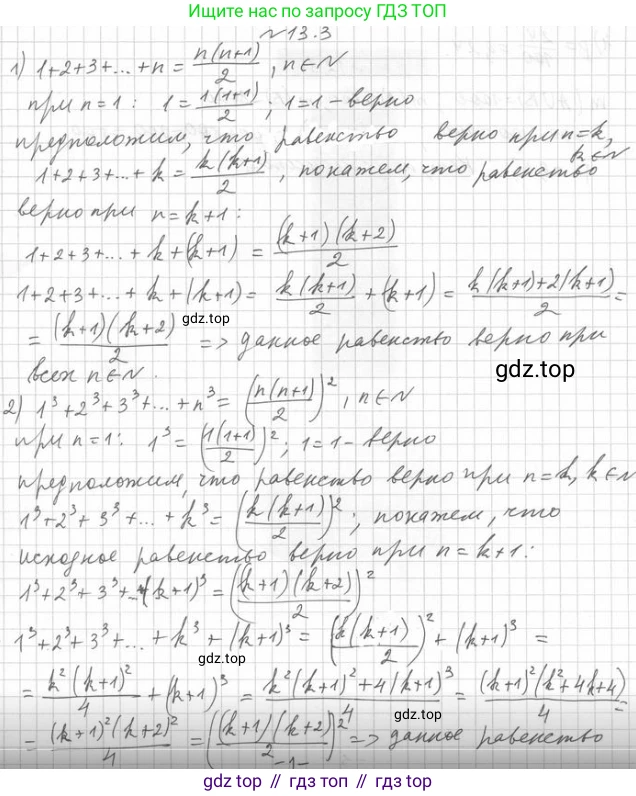 Ищите нас по запросу ГДЗ ТОП
№13.3
1) 1+2+3+...+n = n(n+1)/2, n∈N
при n=1: 1 = 1(1+1)/2; 1=1 - верно
предположим, что равенство верно при n=k, k∈N
1+2+3+...+k = k(k+1)/2, покажем, что равенство
верно при n=k+1:
1+2+3+...+k+(k+1) = (k+1)(k+2)/2
1+2+3+...+k+(k+1) = k(k+1)/2 + (k+1) = k(k+1)+2(k+1)/2 =
= (k+1)(k+2)/2 => данное равенство верно при
gdz.top
gdz.top
всех n∈N.
2) 1³+2³+3³+...+n³ = (n(n+1)/2)², n∈N
при n=1: 1³ = (1(1+1)/2)²; 1=1 - верно
предположим, что равенство верно при n=k, k∈N
1³+2³+3³+...+k³ = (k(k+1)/2)²; покажем, что
исходное равенство верно при n=k+1:
1³+2³+3³+...+(k+1)³ = ((k+1)(k+2)/2)²
1³+2³+3³+...+k³+(k+1)³ = (k(k+1)/2)² + (k+1)³ =
gdz.top
= k²(k+1)²/4 + (k+1)³ = k²(k+1)²+4(k+1)³/4 = (k+1)²(k²+4k+4)/4 =
gdz.top
= (k+1)²(k+2)²/4 = ((k+1)(k+2)/2)² => данное равенство
-1-
gdz top // гдз топ // gdz.top // гдз топ